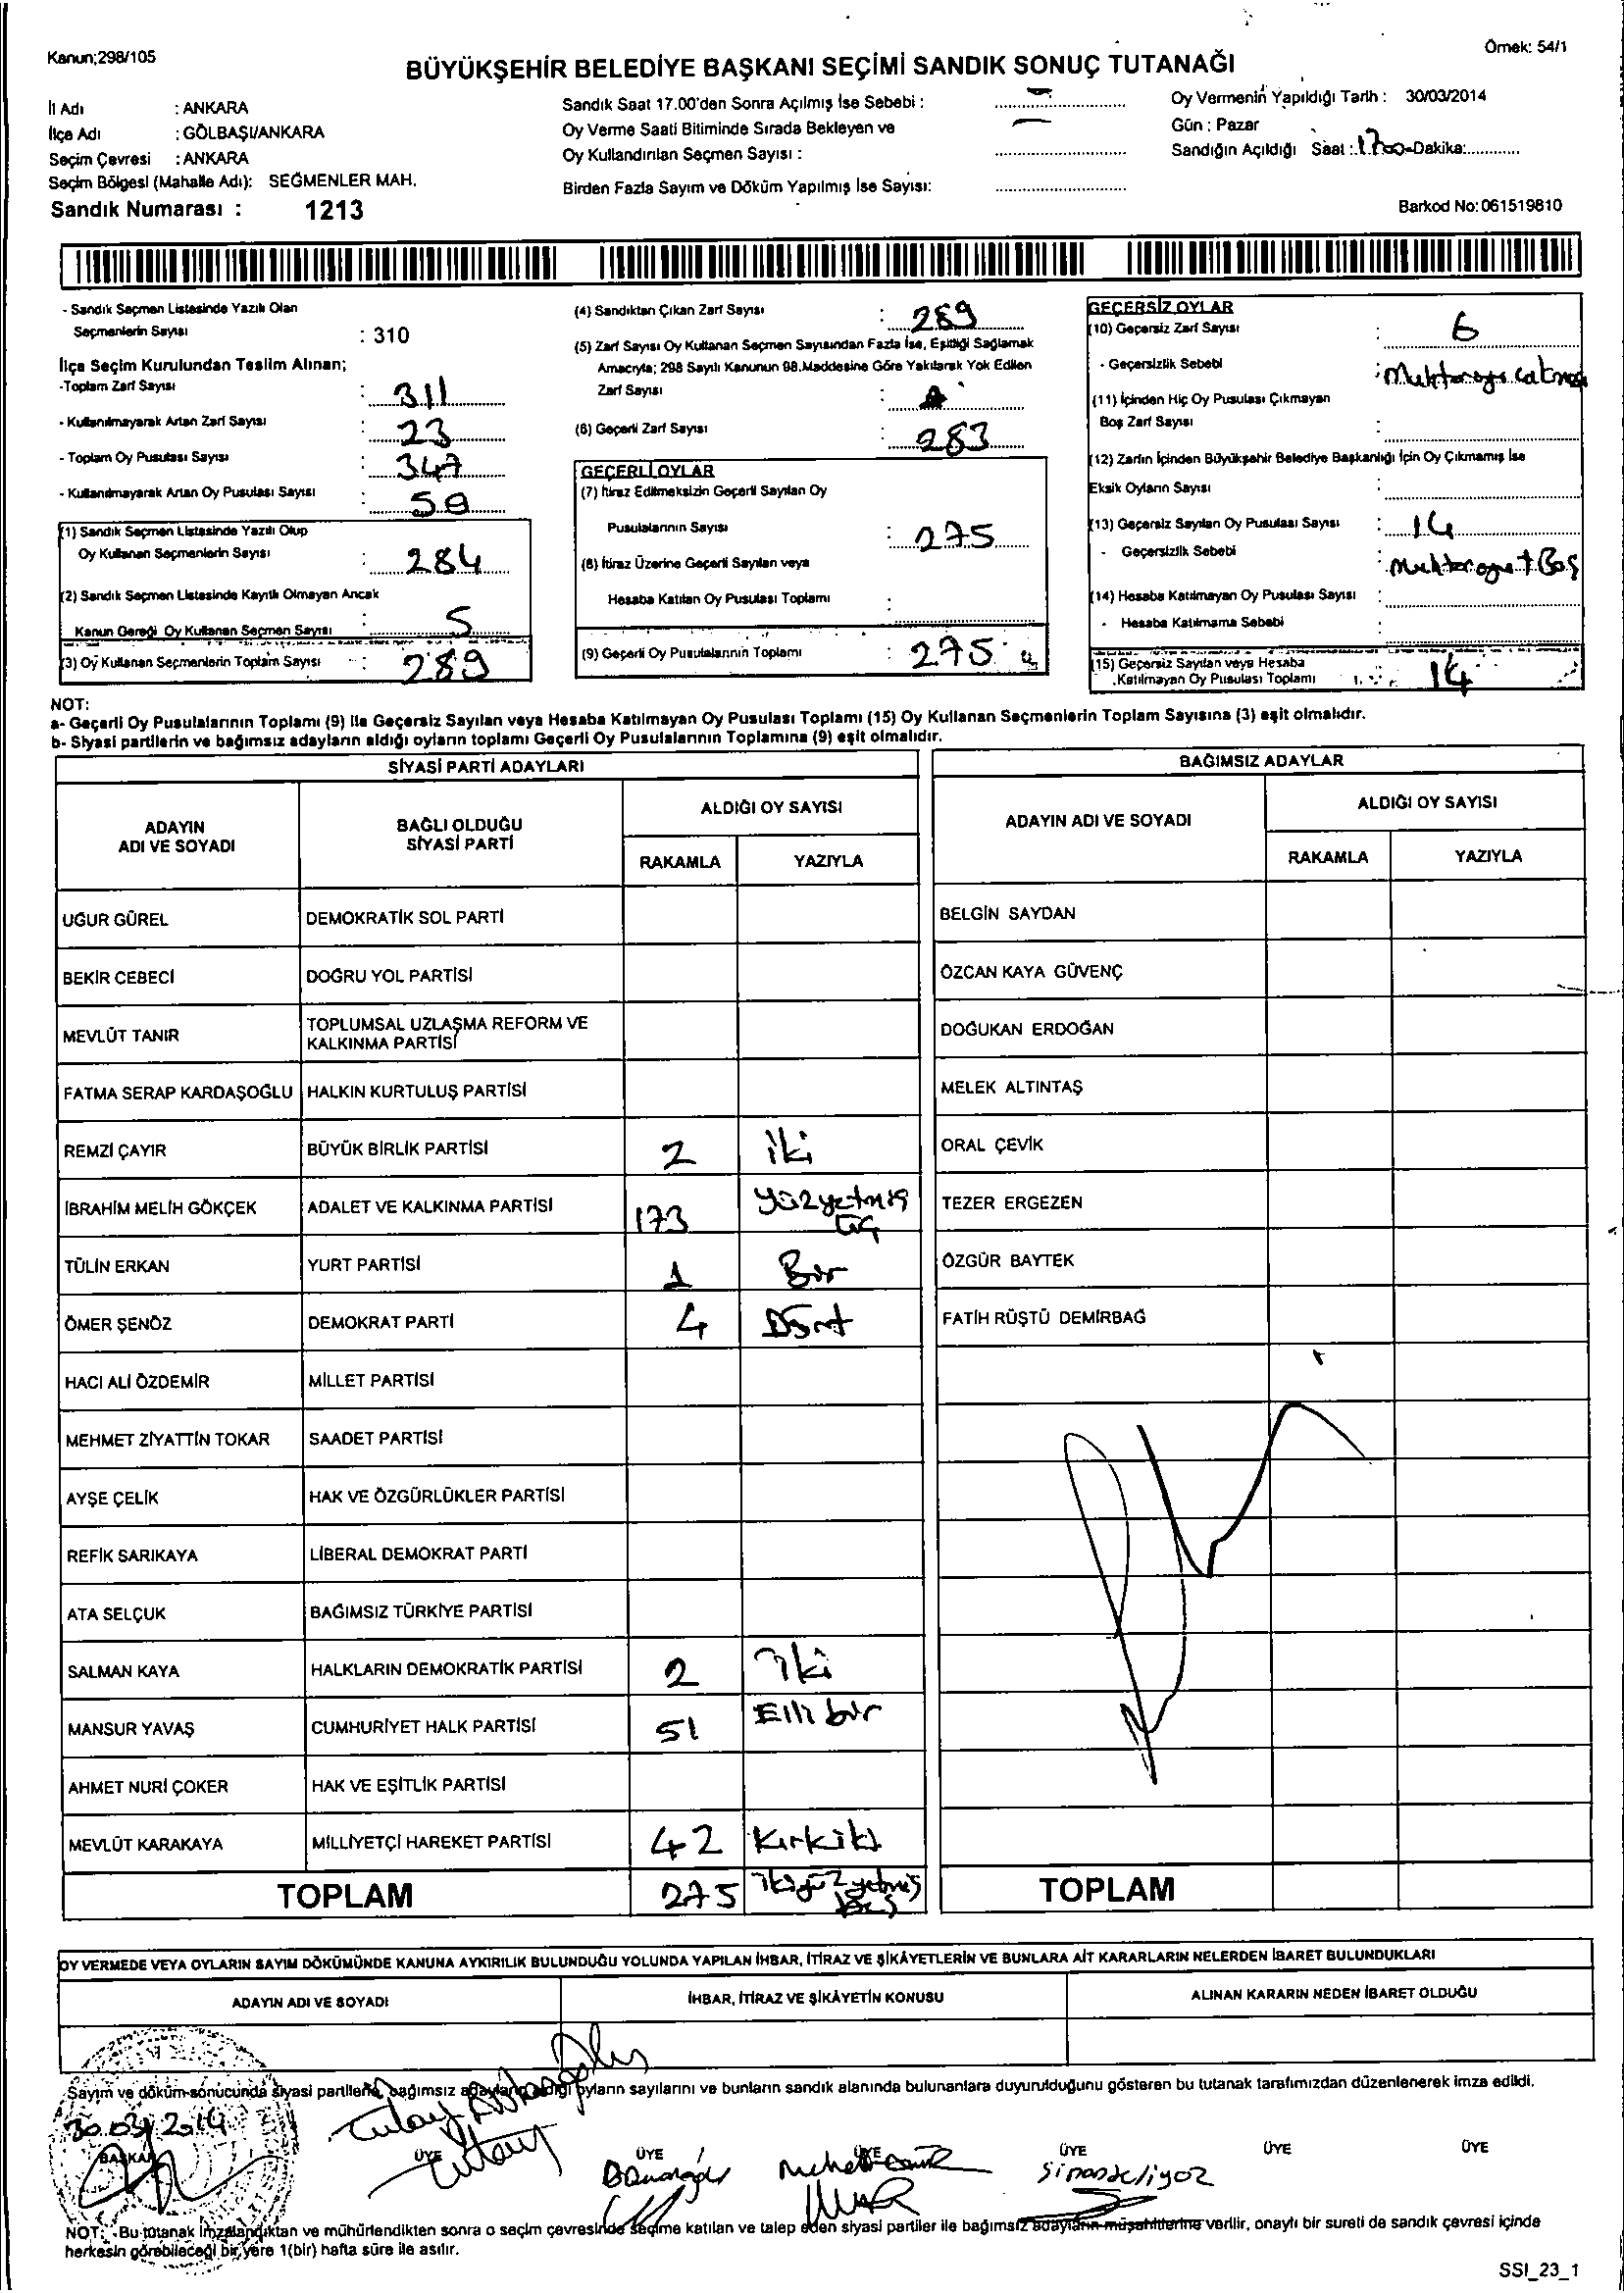 Kanun;298/105
Örnek: 54/1
BÜYÜKŞEHİR BELEDİYE BAŞKANI SEÇİMİ SANDIK SONUÇ TUTANAĞI
İl Adı : ANKARA
İlçe Adı : GÖLBAŞI/ANKARA
Seçim Çevresi : ANKARA
Seçim Bölgesi (Mahalle Adı): SEĞMENLER MAH.
Sandık Numarası : 1213
Sandık Saat 17.00'den Sonra Açılmış İse Sebebi :
Oy Verme Saati Bitiminde Sırada Bekleyen ve
Oy Kullandırılan Seçmen Sayısı :
Birden Fazla Sayım ve Döküm Yapılmış İse Sayısı:
Oy Vermenin Yapıldığı Tarih : 30/03/2014
Gün : Pazar
Sandığın Açıldığı Saat :1700 Dakika:
Barkod No:061519810
- Sandık Seçmen Listesinde Yazılı Olan
Seçmenlerin Sayısı : 310
İlçe Seçim Kurulundan Teslim Alınan;
-Toplam Zarf Sayısı : 311
- Kullanılmayarak Artan Zarf Sayısı : 23
- Toplam Oy Pusulası Sayısı : 347
- Kullanılmayarak Artan Oy Pusulası Sayısı :
(1) Sandık Seçmen Listesinde Yazılı Olup
Oy Kullanan Seçmenlerin Sayısı : 284
(2) Sandık Seçmen Listesinde Kayıtlı Olmayan Ancak
Kanun Gereği Oy Kullanan Seçmen Sayısı : 5
(3) Oy Kullanan Seçmenlerin Toplam Sayısı : 289
(4) Sandıktan Çıkan Zarf Sayısı : 289
(5) Zarf Sayısı Oy Kullanan Seçmen Sayısından Fazla İse, Eşitliği Sağlamak
Amacıyla; 298 Sayılı Kanunun 98.Maddesine Göre Yakılarak Yok Edilen
Zarf Sayısı :
(6) Geçerli Zarf Sayısı : 283
GEÇERLİ OYLAR
(7) İtiraz Edilmeksizin Geçerli Sayılan Oy
Pusulalarının Sayısı : 275
(8) İtiraz Üzerine Geçerli Sayılan veya
Hesaba Katılan Oy Pusulası Toplamı :
(9) Geçerli Oy Pusulalarının Toplamı : 275
GEÇERSİZ OYLAR
(10) Geçersiz Zarf Sayısı : 6
- Geçersizlik Sebebi :
(11) İçinden Hiç Oy Pusulası Çıkmayan
Boş Zarf Sayısı :
(12) Zarfın İçinden Büyükşehir Belediye Başkanlığı İçin Oy Çıkmamış İse
Eksik Oyların Sayısı :
(13) Geçersiz Sayılan Oy Pusulası Sayısı : 14
- Geçersizlik Sebebi : + Boş
(14) Hesaba Katılmayan Oy Pusulası Sayısı :
- Hesaba Katılmama Sebebi :
(15) Geçersiz Sayılan veya Hesaba
Katılmayan Oy Pusulası Toplamı : 14
NOT:
a- Geçerli Oy Pusulalarının Toplamı (9) ile Geçersiz Sayılan veya Hesaba Katılmayan Oy Pusulası Toplamı (15) Oy Kullanan Seçmenlerin Toplam Sayısına (3) eşit olmalıdır.
b- Siyasi partilerin ve bağımsız adayların aldığı oyların toplamı Geçerli Oy Pusulalarının Toplamına (9) eşit olmalıdır.
SİYASİ PARTİ ADAYLARI
ADAYIN ADI VE SOYADI
BAĞLI OLDUĞU SİYASİ PARTİ
ALDIĞI OY SAYISI
RAKAMLA YAZIYLA
UĞUR GÜREL DEMOKRATİK SOL PARTİ
BEKİR CEBECİ DOĞRU YOL PARTİSİ
MEVLÜT TANIR TOPLUMSAL UZLAŞMA REFORM VE
KALKINMA PARTİSİ
FATMA SERAP KARDAŞOĞLU HALKIN KURTULUŞ PARTİSİ
REMZİ ÇAYIR BÜYÜK BİRLİK PARTİSİ 2 iki
İBRAHİM MELİH GÖKÇEK ADALET VE KALKINMA PARTİSİ 173 yüzyetmiş
üç
TÜLİN ERKAN YURT PARTİSİ 1 Bir
ÖMER ŞENÖZ DEMOKRAT PARTİ 4 Dört
HACI ALİ ÖZDEMİR MİLLET PARTİSİ
MEHMET ZİYATTİN TOKAR SAADET PARTİSİ
AYŞE ÇELİK HAK VE ÖZGÜRLÜKLER PARTİSİ
REFİK SARIKAYA LİBERAL DEMOKRAT PARTİ
ATA SELÇUK BAĞIMSIZ TÜRKİYE PARTİSİ
SALMAN KAYA HALKLARIN DEMOKRATİK PARTİSİ 2 iki
MANSUR YAVAŞ CUMHURİYET HALK PARTİSİ 51 Elli bir
AHMET NURİ ÇOKER HAK VE EŞİTLİK PARTİSİ
MEVLÜT KARAKAYA MİLLİYETÇİ HAREKET PARTİSİ 42 Kırkiki
TOPLAM 275 ikiyüz yetmiş
beş
BAĞIMSIZ ADAYLAR
ADAYIN ADI VE SOYADI
ALDIĞI OY SAYISI
RAKAMLA YAZIYLA
BELGİN SAYDAN
ÖZCAN KAYA GÜVENÇ
DOĞUKAN ERDOĞAN
MELEK ALTINTAŞ
ORAL ÇEVİK
TEZER ERGEZEN
ÖZGÜR BAYTEK
FATİH RÜŞTÜ DEMİRBAĞ
TOPLAM
OY VERMEDE VEYA OYLARIN SAYIM DÖKÜMÜNDE KANUNA AYKIRILIK BULUNDUĞU YOLUNDA YAPILAN İHBAR, İTİRAZ VE ŞİKÂYETLERİN VE BUNLARA AİT KARARLARIN NELERDEN İBARET BULUNDUKLARI
ADAYIN ADI VE SOYADI
İHBAR, İTİRAZ VE ŞİKÂYETİN KONUSU
ALINAN KARARIN NEDEN İBARET OLDUĞU
Sayım ve döküm sonucunda siyasi partilerin, bağımsız adayların aldığı oyların sayılarını ve bunların sandık alanında bulunanlara duyurulduğunu gösteren bu tutanak tarafımızdan düzenlenerek imza edildi.
30.03/2014
BAŞKAN ÜYE ÜYE ÜYE ÜYE ÜYE ÜYE
NOT: Bu tutanak imzalandıktan ve mühürlendikten sonra o seçim çevresinde seçime katılan ve talep eden siyasi partiler ile bağımsız adayların müşahitlerine verilir, onaylı bir sureti de sandık çevresi içinde
herkesin görebileceği bir yere 1(bir) hafta süre ile asılır.
SSI_23_1